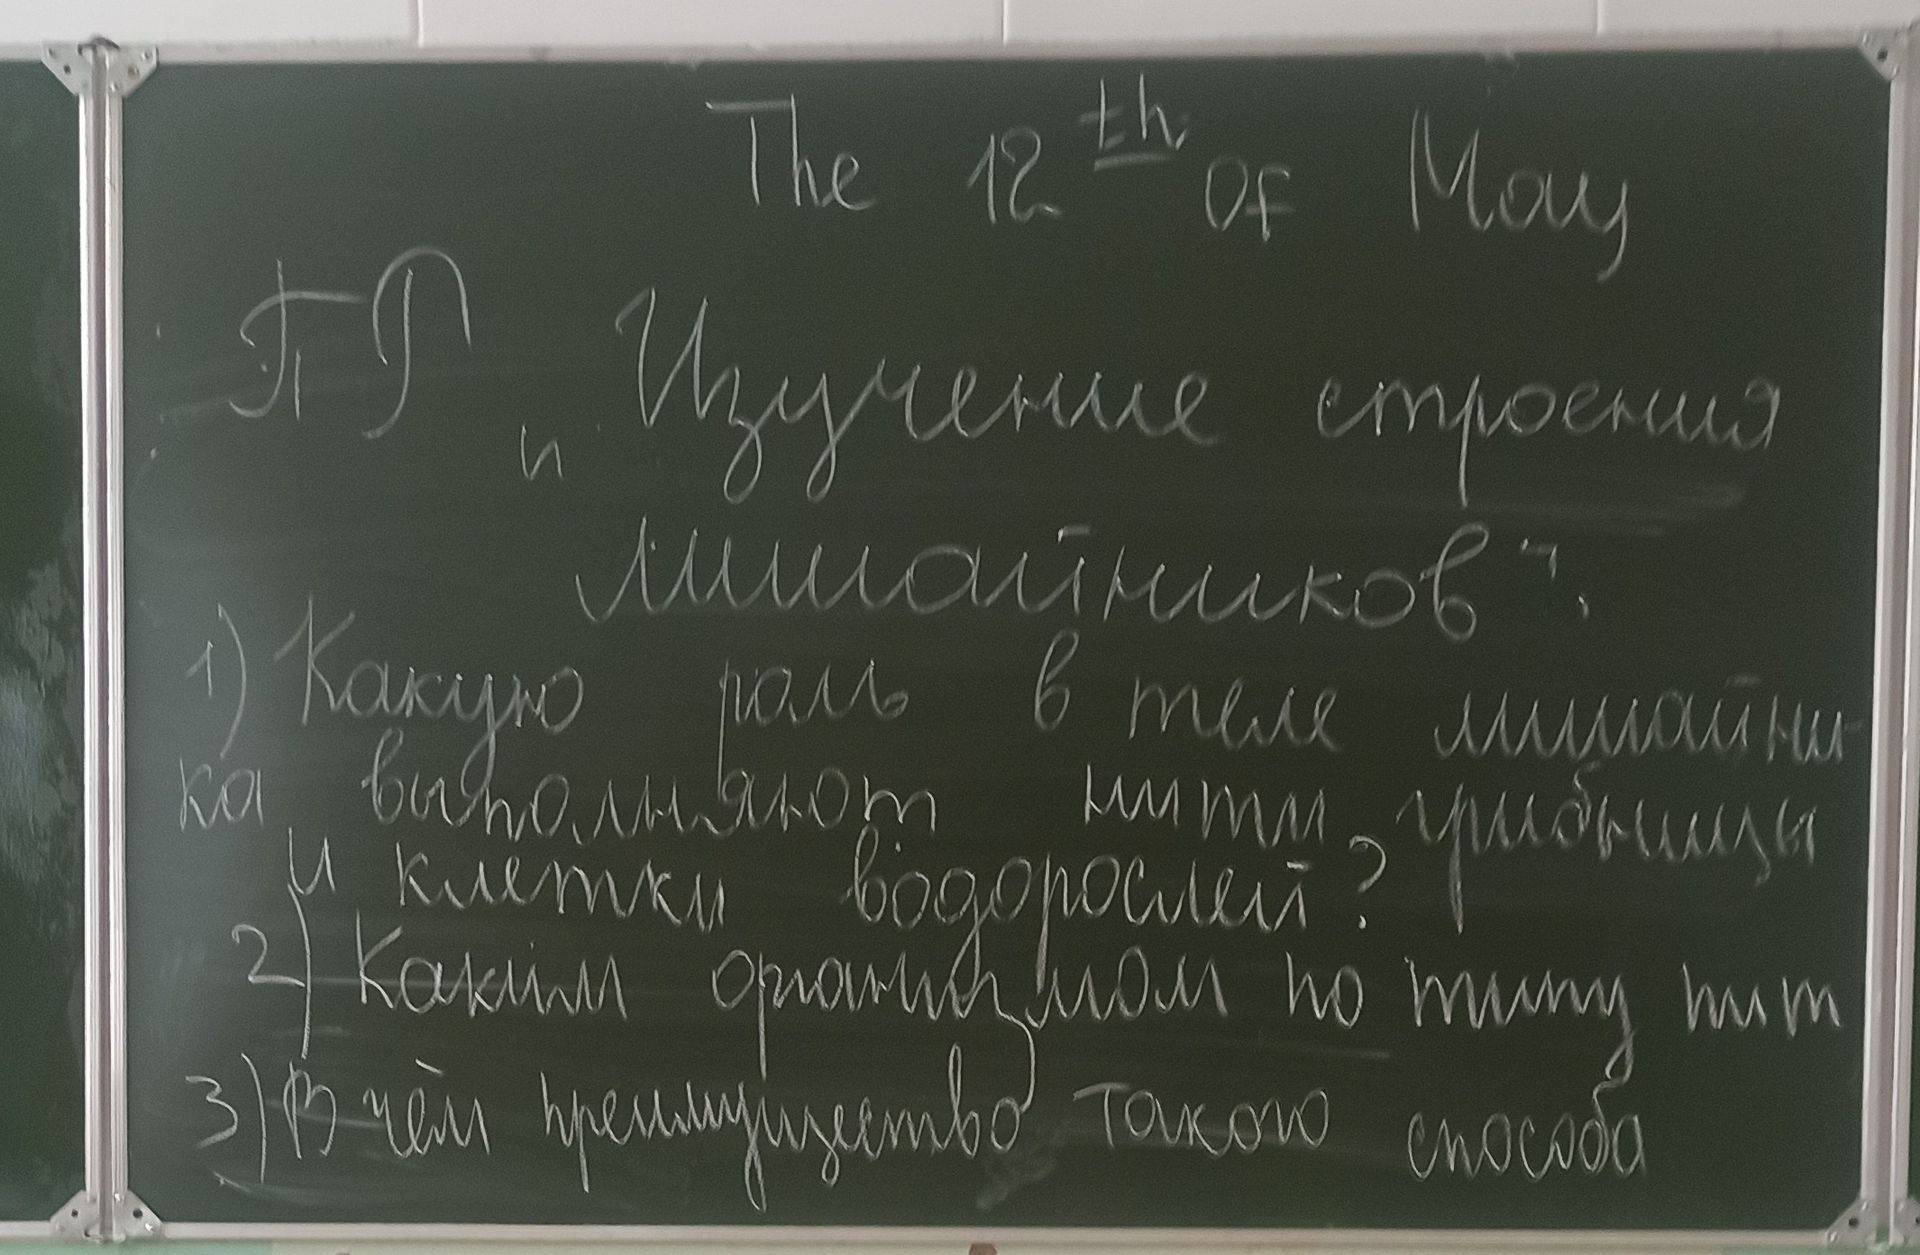 The 12th of May
ПР „Изучение строения
лишайников".
1) Какую роль в теле лишайни-
ка выполняют нити грибницы
и клетки водорослей?
2) Каким организмом по типу пит
3) В чём преимущество такого способа